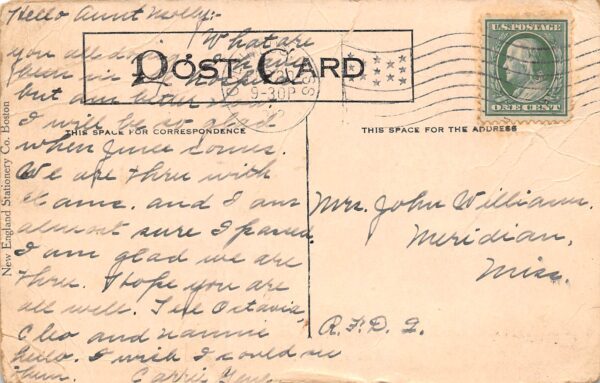 Hello Aunt Molly:-
What are
you all doing
been in
but am better now.
I will be so glad
when June comes.
We are thru with
Exams. and I am
almost sure I passed.
I am glad we are
thru. I hope you are
all well. Tell Octavia,
Cleo and Nannie
hello. I wish I could see
them. Carrie
POST CARD
9-30P
THIS SPACE FOR CORRESPONDENCE
THIS SPACE FOR THE ADDRESS
New England Stationery Co. Boston
U.S. POSTAGE
ONE CENT
Mrs. John Williams,
Meridian,
Miss.
R.F.D.